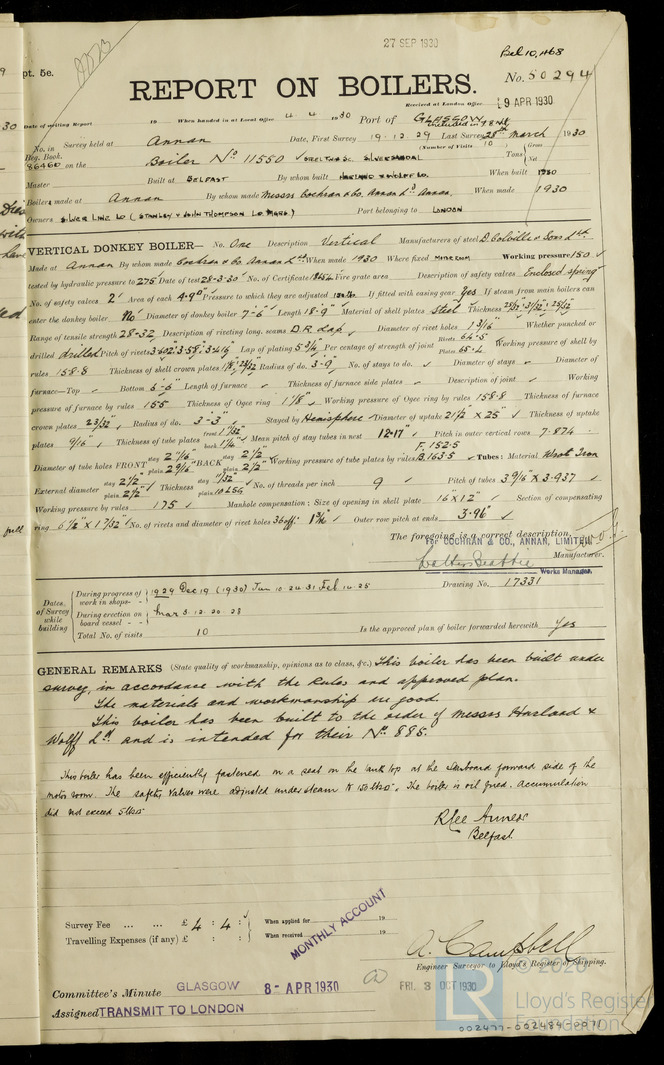 27 SEP 1930
Bel 10,468
pt. 5e.
REPORT ON BOILERS.
No. 50294
Received at London Office 9 APR 1930
Date of writing Report 19 When handed in at Local Office 4 4 1930 Port of GLASGOW
No. in Survey held at Annan Date, First Survey 19.12.29 Last Survey 28th March 1930
Reg. Book. (Number of Visits 10)
86460 on the Boiler No 11550 SILVERSANDAL Tons Gross Net
Master Built at BELFAST By whom built HARLAND & WOLFF LD. When built 1930
Boilers made at Annan By whom made Messrs Cochran & Co. Annan Ld. Annan When made 1930
Owners SILVER LINE LD (STANLEY & JOHN THOMPSON LD. MANG.) Port belonging to LONDON
VERTICAL DONKEY BOILER— No. One Description Vertical Manufacturers of steel D. Colville & Sons Ltd
Made at Annan By whom made Cochran & Co Annan Ltd When made 1930 Where fixed MOTOR ROOM Working pressure 150
tested by hydraulic pressure to 275 Date of test 28-3-30 No. of Certificate 18654 Fire grate area Description of safety valves Enclosed spring
No. of safety valves 2 Area of each 4.90" Pressure to which they are adjusted 150 lbs If fitted with easing gear Yes If steam from main boilers can
enter the donkey boiler No Diameter of donkey boiler 7'-6" Length 18'-9" Material of shell plates Steel Thickness 25/32", 31/32", 25/32
Range of tensile strength 28-32 Description of riveting long. seams D.R. Lap Diameter of rivet holes 1 3/16 Whether punched or
drilled drilled Pitch of rivets 3.602", 3.58", 3.416" Lap of plating 5 3/4 Per centage of strength of joint Rivets 64.5 Plates 65.4 Working pressure of shell by
rules 158.8 Thickness of shell crown plates Radius of do. 3'-9" No. of stays to do. Diameter of stays Diameter of
furnace—Top Bottom 6'-6" Length of furnace Thickness of furnace side plates Description of joint Working
pressure of furnace by rules 155 Thickness of Ogee ring 1 1/8" Working pressure of Ogee ring by rules 158.8 Thickness of furnace
crown plates 23/32" Radius of do. 3'-3" Stayed by Hemisphere Diameter of uptake 21 1/2 x 25" Thickness of uptake
plates 9/16" Thickness of tube plates front back Mean pitch of stay tubes in nest 12.17" Pitch in outer vertical rows 7.874
Diameter of tube holes FRONT stay 2 11/16" plain 2 9/16" BACK stay 2 1/2 plain 2 1/2" Working pressure of tube plates by rules F. 152.5 B. 163.5 Tubes: Material Wrot Iron
External diameter stay 2 1/2" plain 2 1/2" Thickness stay 11/32" plain 10 LSG No. of threads per inch 9 Pitch of tubes 3 9/16" x 3.937
Working pressure by rules 175 Manhole compensation: Size of opening in shell plate 16" x 12" Section of compensating
ring 6 1/2" x 1 7/32" No. of rivets and diameter of rivet holes 36 off: 1 3/16 Outer row pitch at ends 3.96"
The foregoing is a correct description,
For COCHRAN & CO., ANNAN, LIMITED
Walter Beattie Manufacturer.
Works Manager.
Dates of Survey while building
During progress of work in shops - - 1929 Dec 19 (1930) Jan 10. 24. 31 Feb 14. 25
During erection on board vessel - - Mar 3. 12. 20. 28
Total No. of visits 10
Drawing No. 17331
Is the approved plan of boiler forwarded herewith Yes
GENERAL REMARKS (State quality of workmanship, opinions as to class, &c.) This boiler has been built under
survey, in accordance with the Rules and approved plan.
The materials and workmanship is good.
This boiler has been built to the order of Messrs Harland &
Wolff Ltd and is intended for their No 885.
This boiler has been efficiently fastened on a seat on the tank top at the starboard forward side of the
motor room. The safety valves were adjusted under steam to 150 lbs. The boiler is oil fired. Accumulation
did not exceed 5 lbs
Belfast.
Survey Fee ... ... £ 4 : 4 : When applied for 19
Travelling Expenses (if any) £ : : When received 19
MONTHLY ACCOUNT
A. Campbell
Engineer Surveyor to Lloyd's Register of Shipping.
Committee's Minute GLASGOW 8- APR 1930 FRI. 3 OCT 1930
Assigned TRANSMIT TO LONDON
© 2020
Lloyd's Register
Foundation
002477-002484-0071